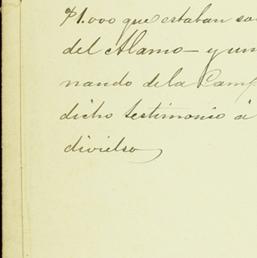 $1.000 que estaban so
del Alamo — y un
nando de la Camp
dicho testimonio á